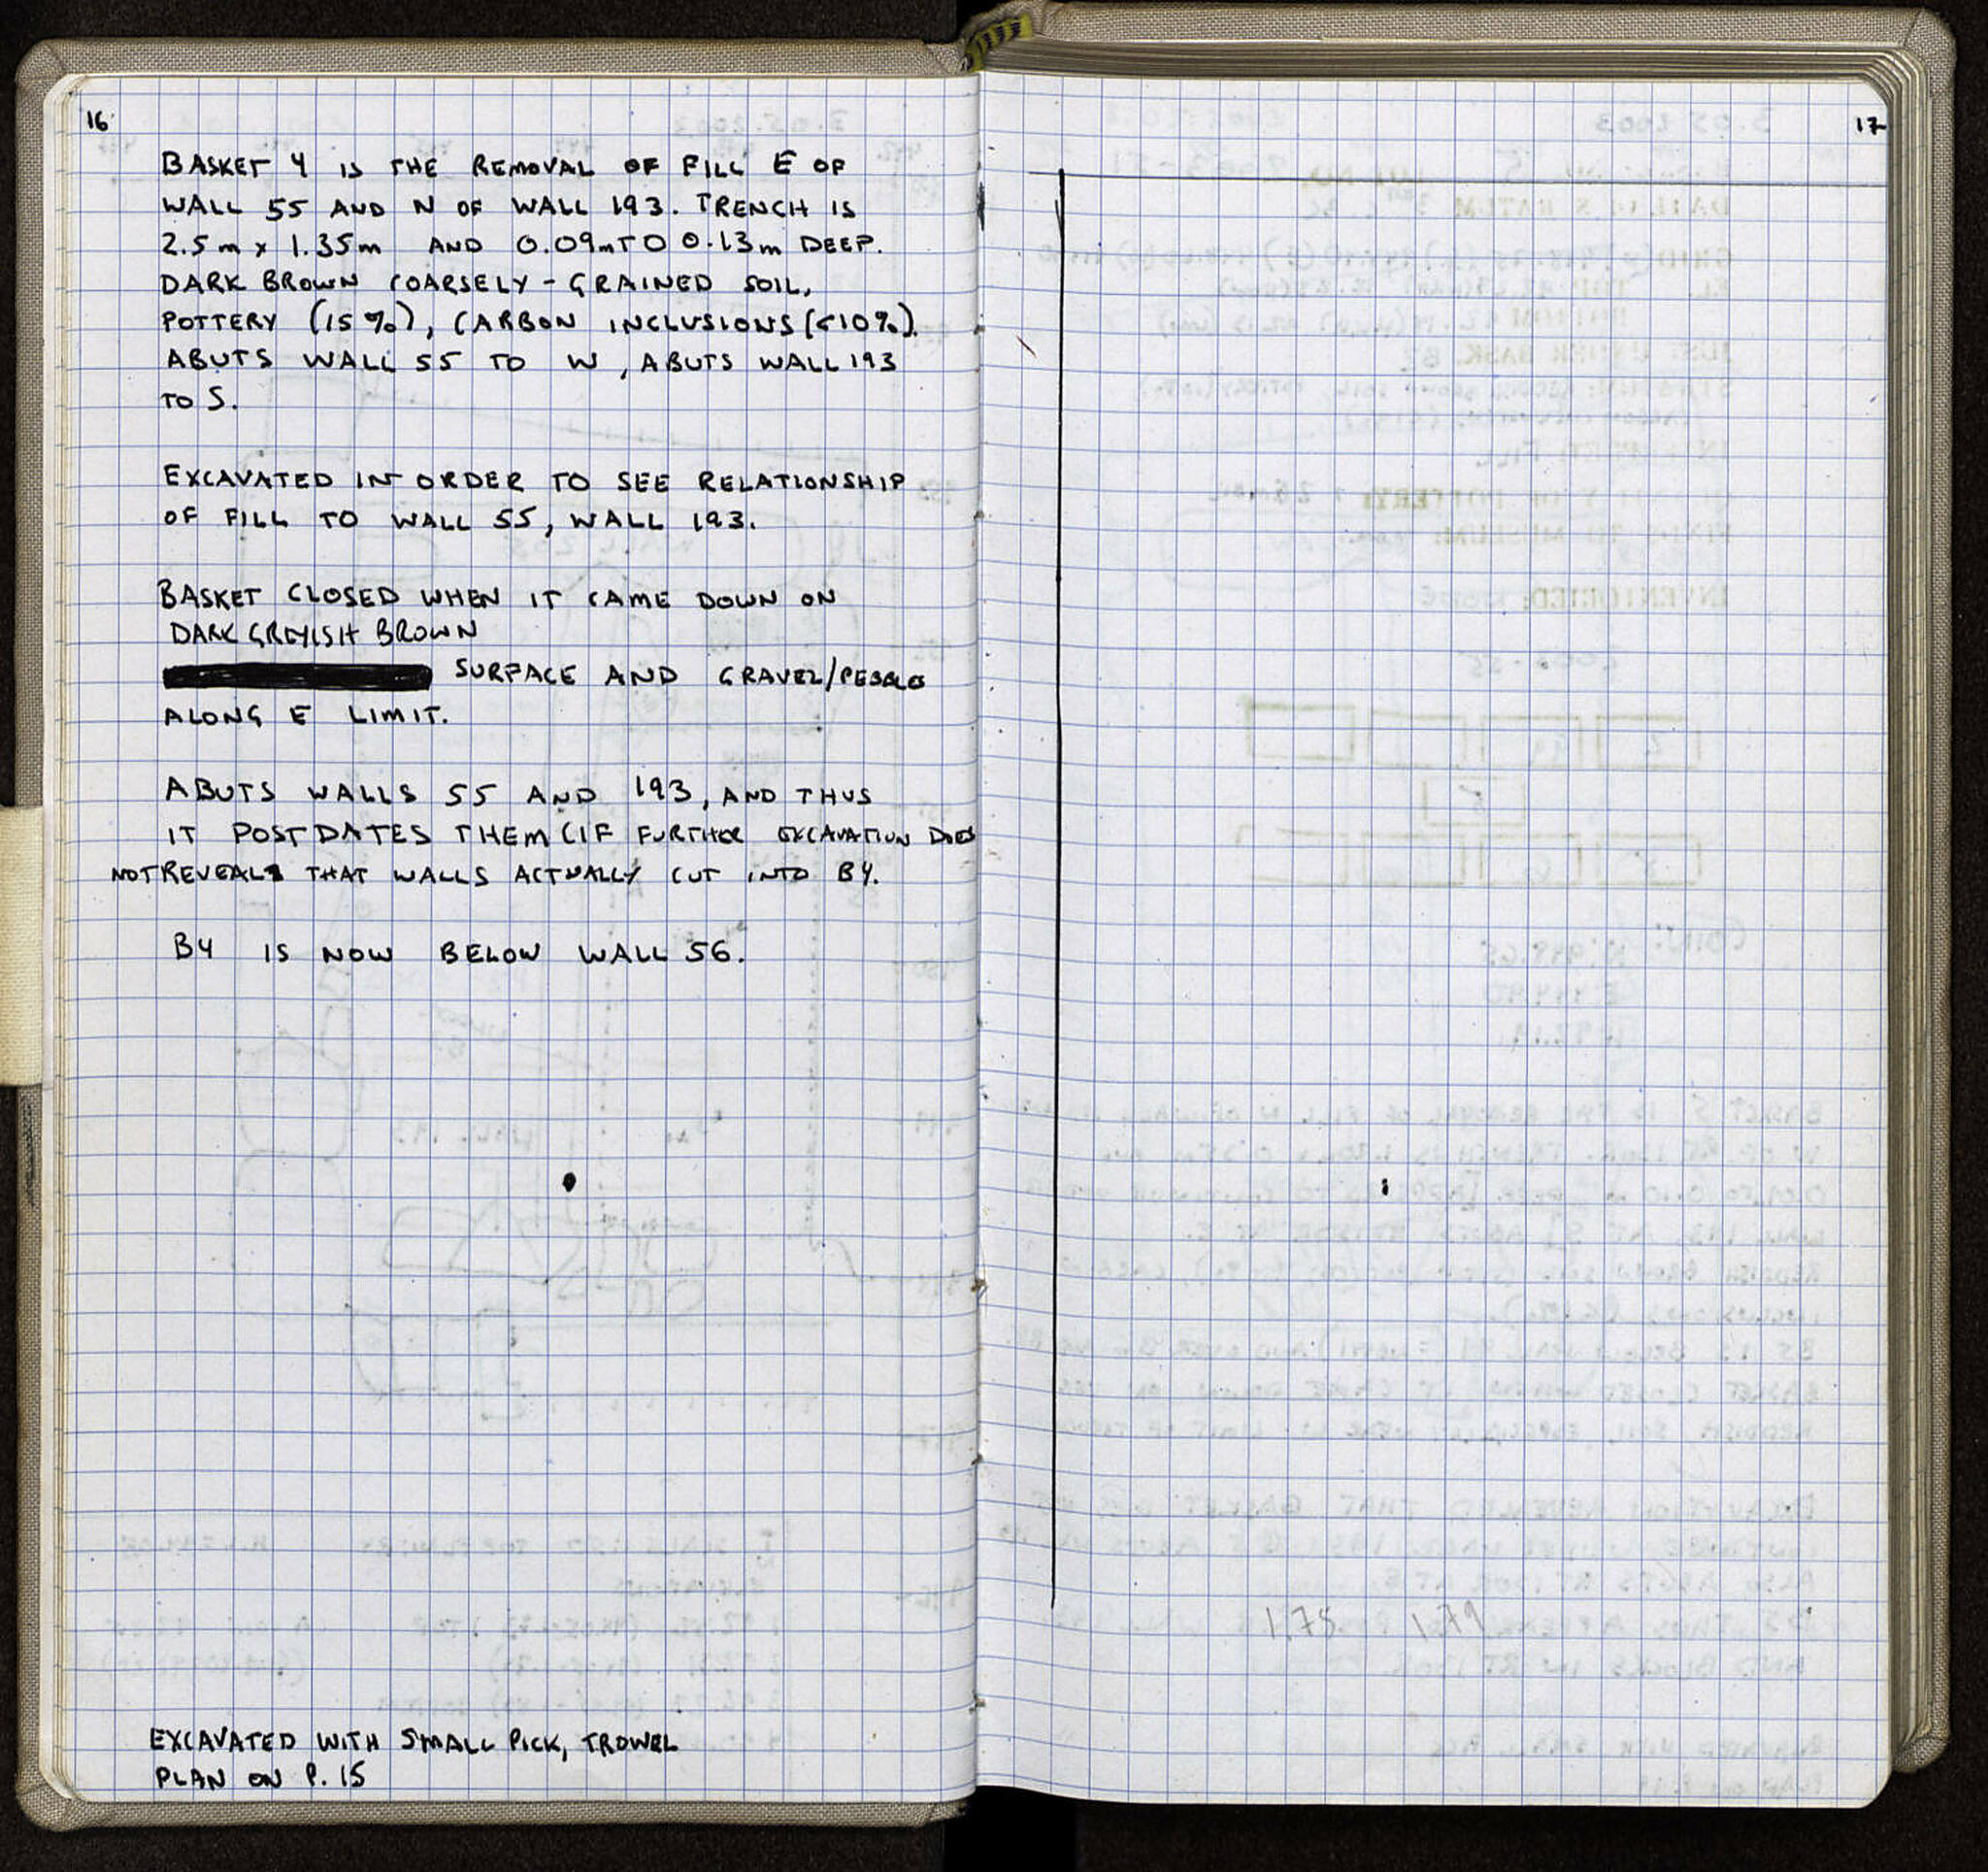 16
BASKET 4 IS THE REMOVAL OF FILL E OF
WALL 55 AND N OF WALL 193. TRENCH IS
2.5m x 1.35m AND 0.09m TO 0.13m DEEP.
DARK BROWN COARSELY-GRAINED SOIL,
POTTERY (15%), CARBON INCLUSIONS (<10%).
ABUTS WALL 55 TO W, ABUTS WALL 193
TO S.
EXCAVATED IN ORDER TO SEE RELATIONSHIP
OF FILL TO WALL 55, WALL 193.
BASKET CLOSED WHEN IT CAME DOWN ON
DARK GREYISH BROWN
SURFACE AND GRAVEL/PEBBLES
ALONG E LIMIT.
ABUTS WALLS 55 AND 193, AND THUS
IT POSTDATES THEM (IF FURTHER EXCAVATION DOES
NOT REVEAL THAT WALLS ACTUALLY CUT INTO B4.
B4 IS NOW BELOW WALL 56.
EXCAVATED WITH SMALL PICK, TROWEL
PLAN ON P. 15
17
1.75 1.79